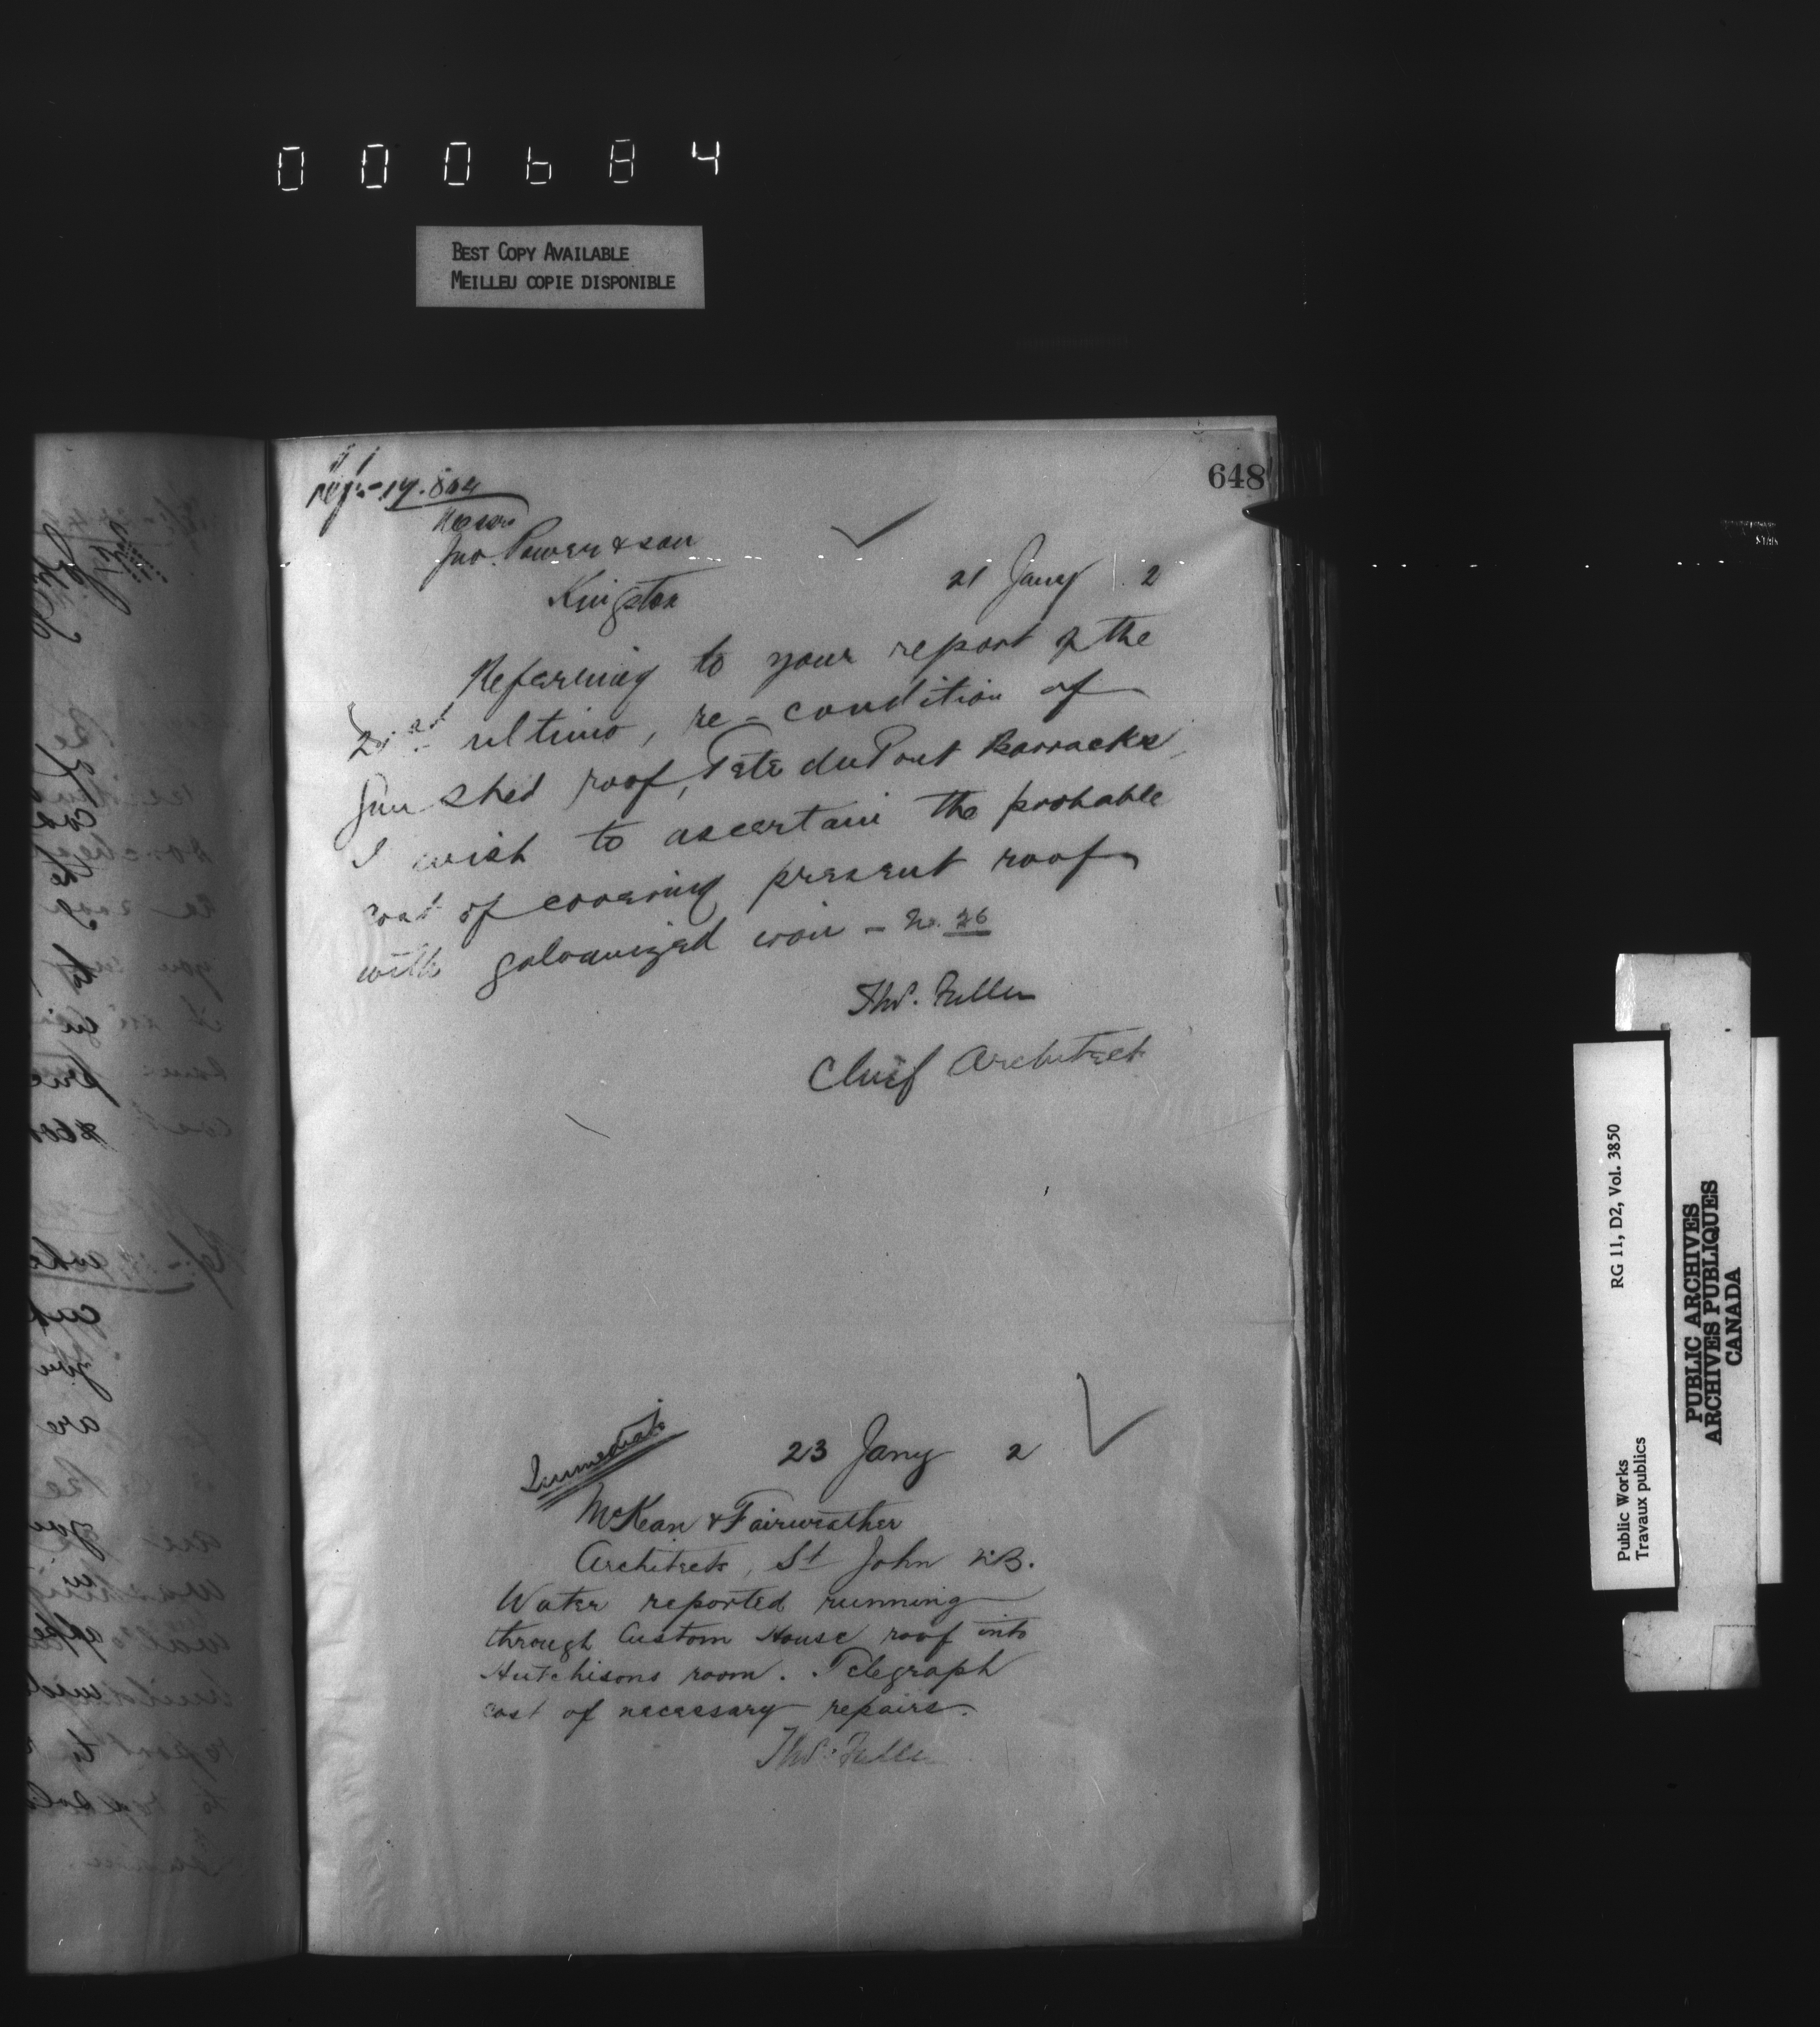 000684
BEST COPY AVAILABLE
MEILLEU COPIE DISPONIBLE
648
Messrs
Jno. Power & son
Kingston
21 Jany 2
Referring to your report of the
ultimo, re-condition of
Gun shed roof, Tete du Pont Barracks,
I wish to ascertain the probable
cost of covering present roof
with galvanized iron - No. 26
Thos. Fuller
Chief Architect
Immediate
23 Jany 2
McKean & Fairweather
Architects, St John N.B.
Water reported running
through Custom House roof into
Hutchisons room. Telegraph
cost of necessary repairs.
Thos. Fuller
RG 11, D2, Vol. 3850
Public Works
Travaux publics
PUBLIC ARCHIVES
ARCHIVES PUBLIQUES
CANADA